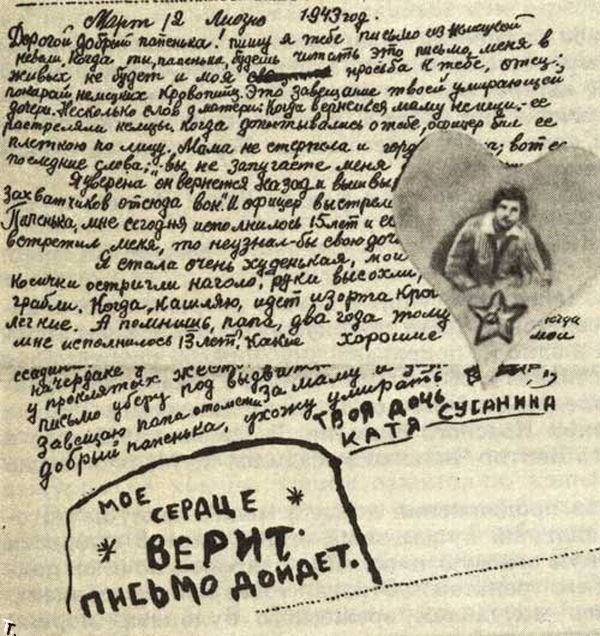 Март 12 Лиозно 1943 год.
Дорогой добрый папенька! пишу я тебе письмо из немецкой
неволи. Когда ты, папенька, будешь читать это письмо, меня в
живых не будет и моя просьба к тебе, отец:
покарай немецких кровопийц. Это завещание твоей умирающей
дочери. Несколько слов о матери: Когда вернешься маму не ищи. её
растреляли немцы. когда допытывались о тебе, офицер бил её
плеткою по лицу. Мама не стерпела и гор вот ее
последние слова: „вы не запугаете меня
Я уверена он вернется назад и вышвы
захватчиков отсюда вон. И офицер выстрел
Папенька, мне сегодня исполнилось 15 лет и ес
встретил меня, то неузнал-бы свою доч
Я стала очень худенькая, мои
косички остригли наголо, руки высохли,
грабли. Когда, кашляю, идет изо рта кро
легкие. А помнишь, папа, два года тому когда
мне исполнилось 13 лет. Какие хорошие мои
на чердаке
у проклятых
письмо уберу под за маму и
Завещаю папа отомсти
добрый папенька, ухожу умирать
ТВОЯ ДОЧЬ
КАТЯ СУСАНИНА
МОЕ
СЕРДЦЕ
ВЕРИТ.
ПИСЬМО ДОЙДЕТ.
г.